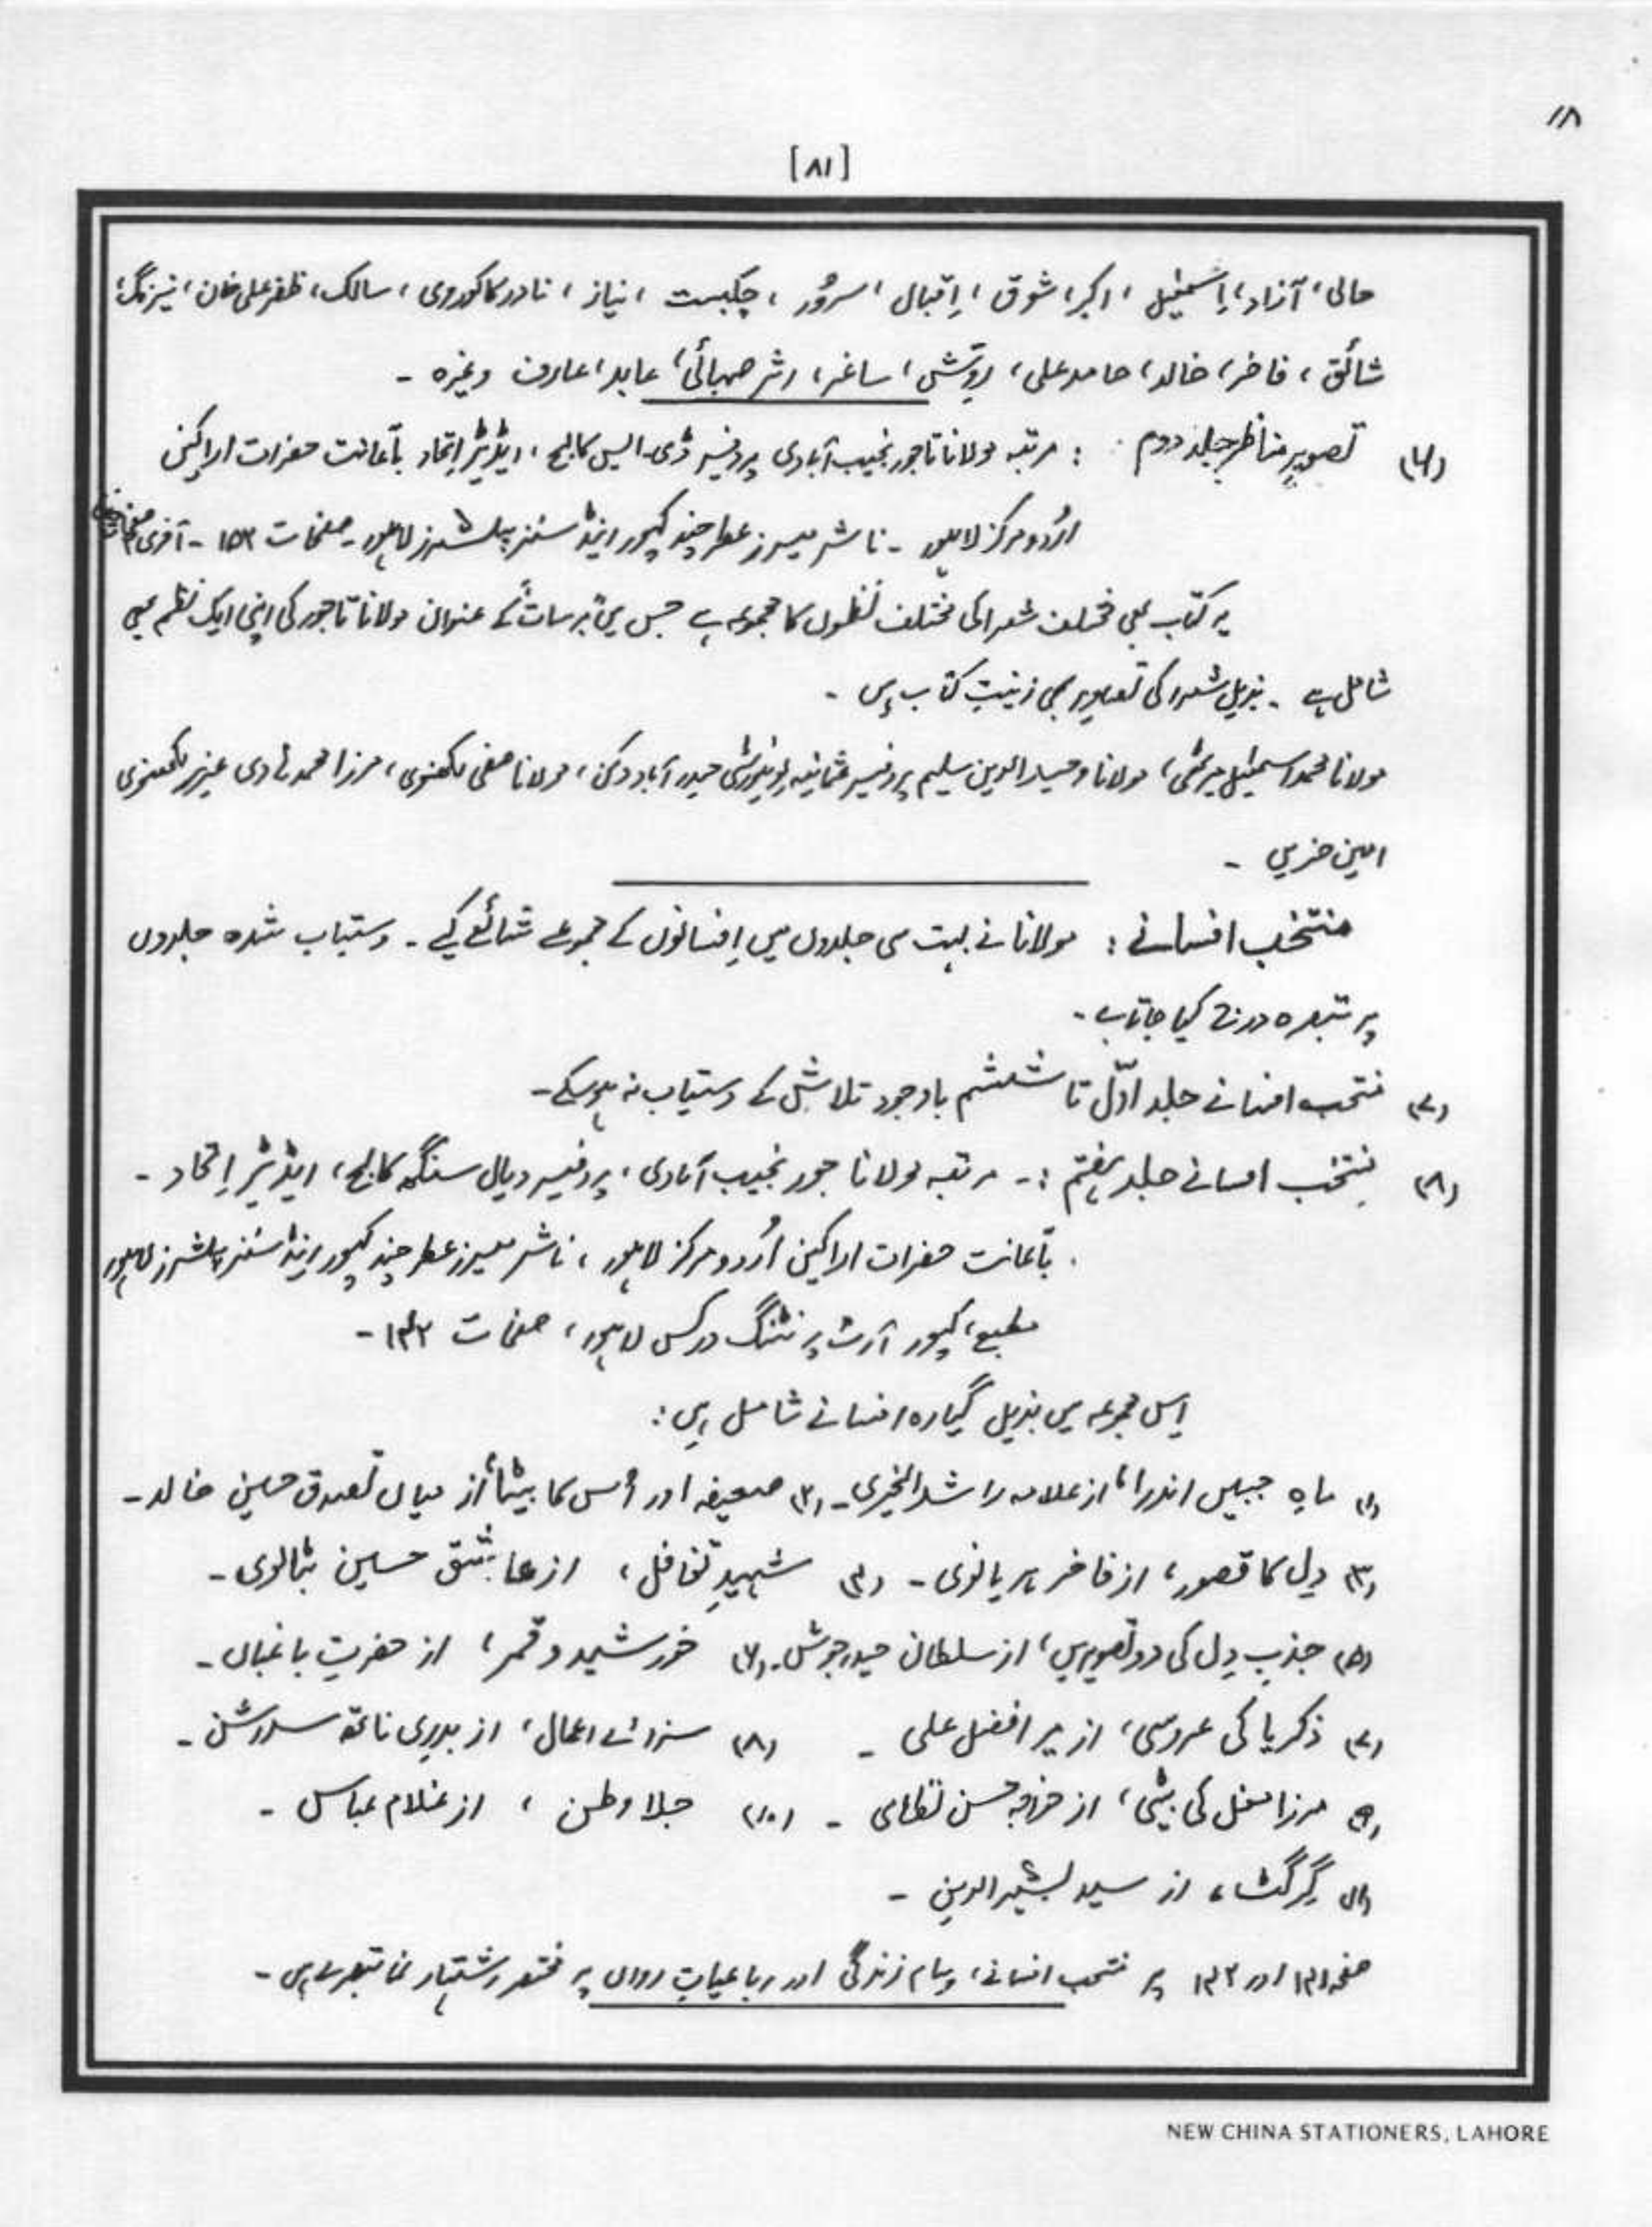 ۱۸
[۸۱]
حالی، آزاد، اِسمٰعیل، اکبر، شوق، اِقبال، سرُور، چکبست، نیاز، نادر کاکوروی، سالک، ظفر علی خان، نیرنگ،
شائق، فاخر، خالد، حامد علی، روّش، ساغر، اثر صہبائی، عابد، عارف وغیرہ ۔
(۶) تصویرِ مناظر جلد دوم : مرتبہ مولانا تاجور نجیب آبادی پروفیسر ڈی۔ایس کالج، ایڈیٹر اِتحاد بآعانت حضرات اراکین
اُردو مرکز لاہور ۔ ناشر میسرز عطر چند کپور اینڈ سنز پبلشرز لاہور ۔ صفحات ۱۵۳ ۔ آخری
یہ کتاب بھی مختلف شعرا کی مختلف نظموں کا مجموعہ ہے جس میں "برسات" کے عنوان مولانا تاجور کی اپنی ایک نظم بھی
شامل ہے ۔ بذیل شعرا کی تصاویر بھی زینتِ کتاب ہیں ۔
مولانا محمد اسمٰعیل میرٹھی، مولانا وحید الدین سلیم پروفیسر عثمانیہ یونیورسٹی حیدر آباد دکن، مولانا صفی لکھنوی، مرزا محمد ہادی عزیز لکھنوی
امین حزیں ۔
منتخب افسانے : مولانا نے بہت سی جلدوں میں اِفسانوں کے مجموعے شائع کیے ۔ دستیاب شدہ جلدوں
پر تبصرہ درج کیا جاتا ہے ۔
(۷) منتخب افسانے جلد اوّل تا ششم باوجود تلاش کے دستیاب نہ ہو سکے ۔
(۸) منتخب افسانے جلد ہفتم :۔ مرتبہ مولانا تاجور نجیب آبادی، پروفیسر دیال سنگھ کالج، ایڈیٹر اِتحاد ۔
بآعانت حضرات اراکین اُردو مرکز لاہور، ناشر میسرز عطر چند کپور اینڈ سنز پبلشرز لاہور
مطبع، کپور آرٹ پرنٹنگ ورکس لاہور، صفحات ۱۴۲ ۔
اِس مجموعہ میں بذیل گیارہ افسانے شامل ہیں :
(۱) ماہِ جبیں اندرا، از علامہ راشد الخیری ۔ (۲) ضعیفہ اور اُس کا بیٹا، از میاں تصدق حسین خالد ۔
(۳) دِل کا قصور، از فاخر ہریانوی ۔ (۴) شہیدِ تغافل، از عاشق حسین بٹالوی ۔
(۵) جذبِ دِل کی دو تصویریں، از سلطان حیدر جوش ۔ (۶) خورشید و قمر، از حضرتِ باغباں ۔
(۷) ذکریا کی عروسی، از میر افضل علی ۔ (۸) سزائے اعمال، از بدری ناتھ سدرشن ۔
(۹) مرزا مغل کی بیٹی، از خواجہ حسن نظامی ۔ (۱۰) جلا وطن، از غلام عباس ۔
(۱۱) گِرگٹ، از سید بشیر الدین ۔
صفحہ ۱۴۱ اور ۱۴۲ پر منتخب افسانے، پیام زندگی اور رباعیاتِ رواں پر مختصر اشتہار نما تبصرے ہیں ۔
NEW CHINA STATIONERS, LAHORE